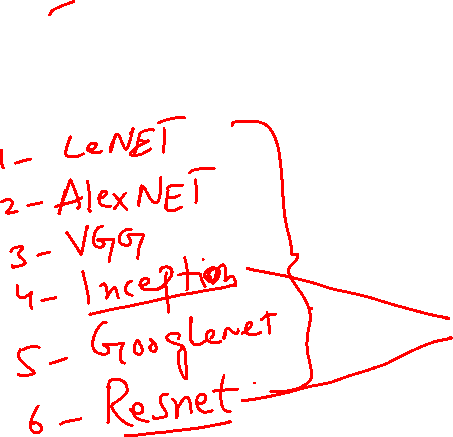 1- LeNET
2- AlexNET
3- VGG
4- Inception
5- Googlenet
6- Resnet